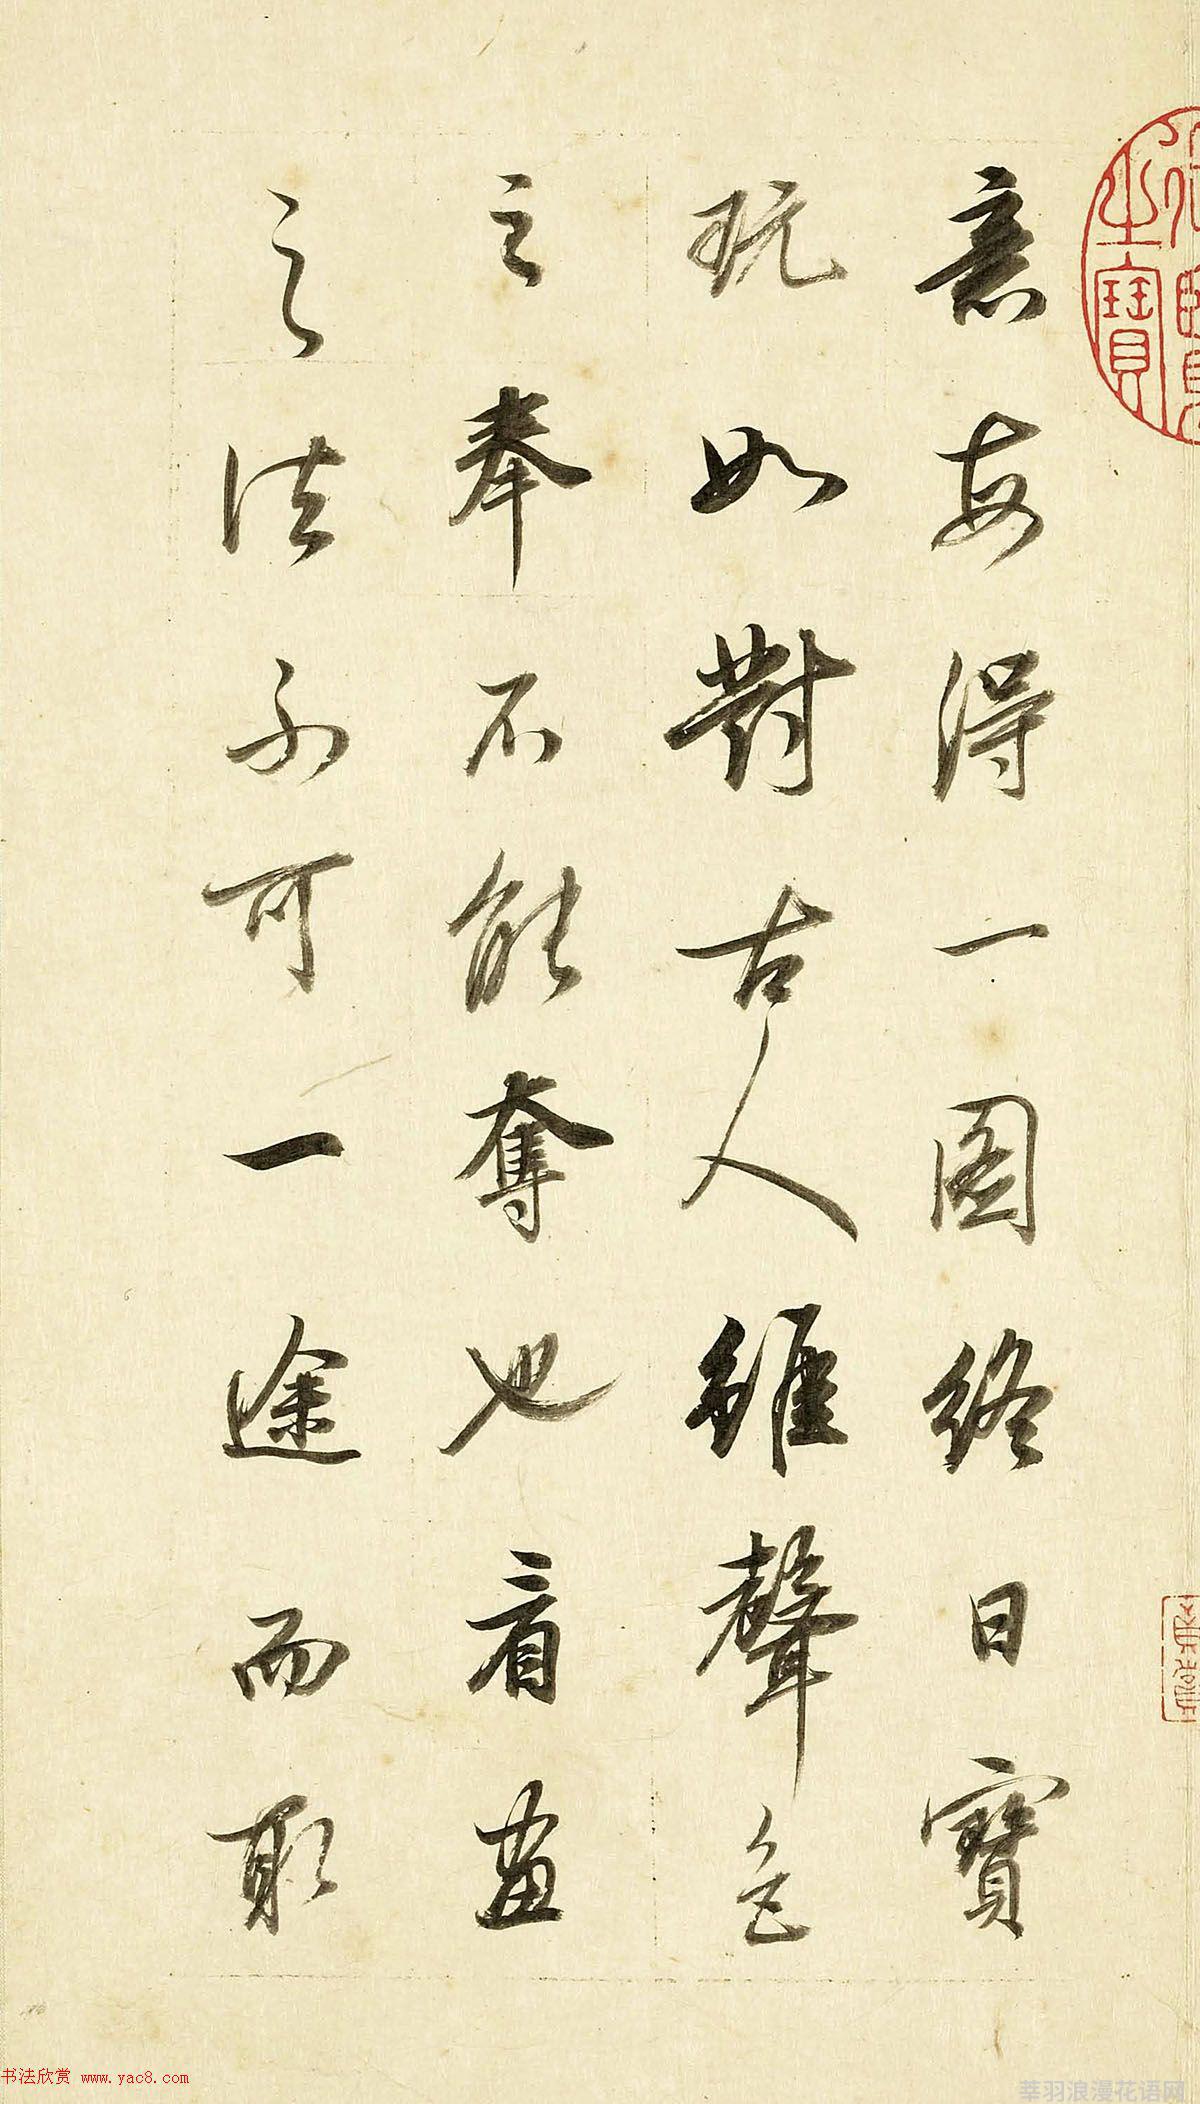 意每得一圖終日寶
玩如對古人雖聲色
之奉不能奪也看畫
之法不可一途而取
之寶
书法欣赏 www.yac8.com
莘羽浪漫花语网